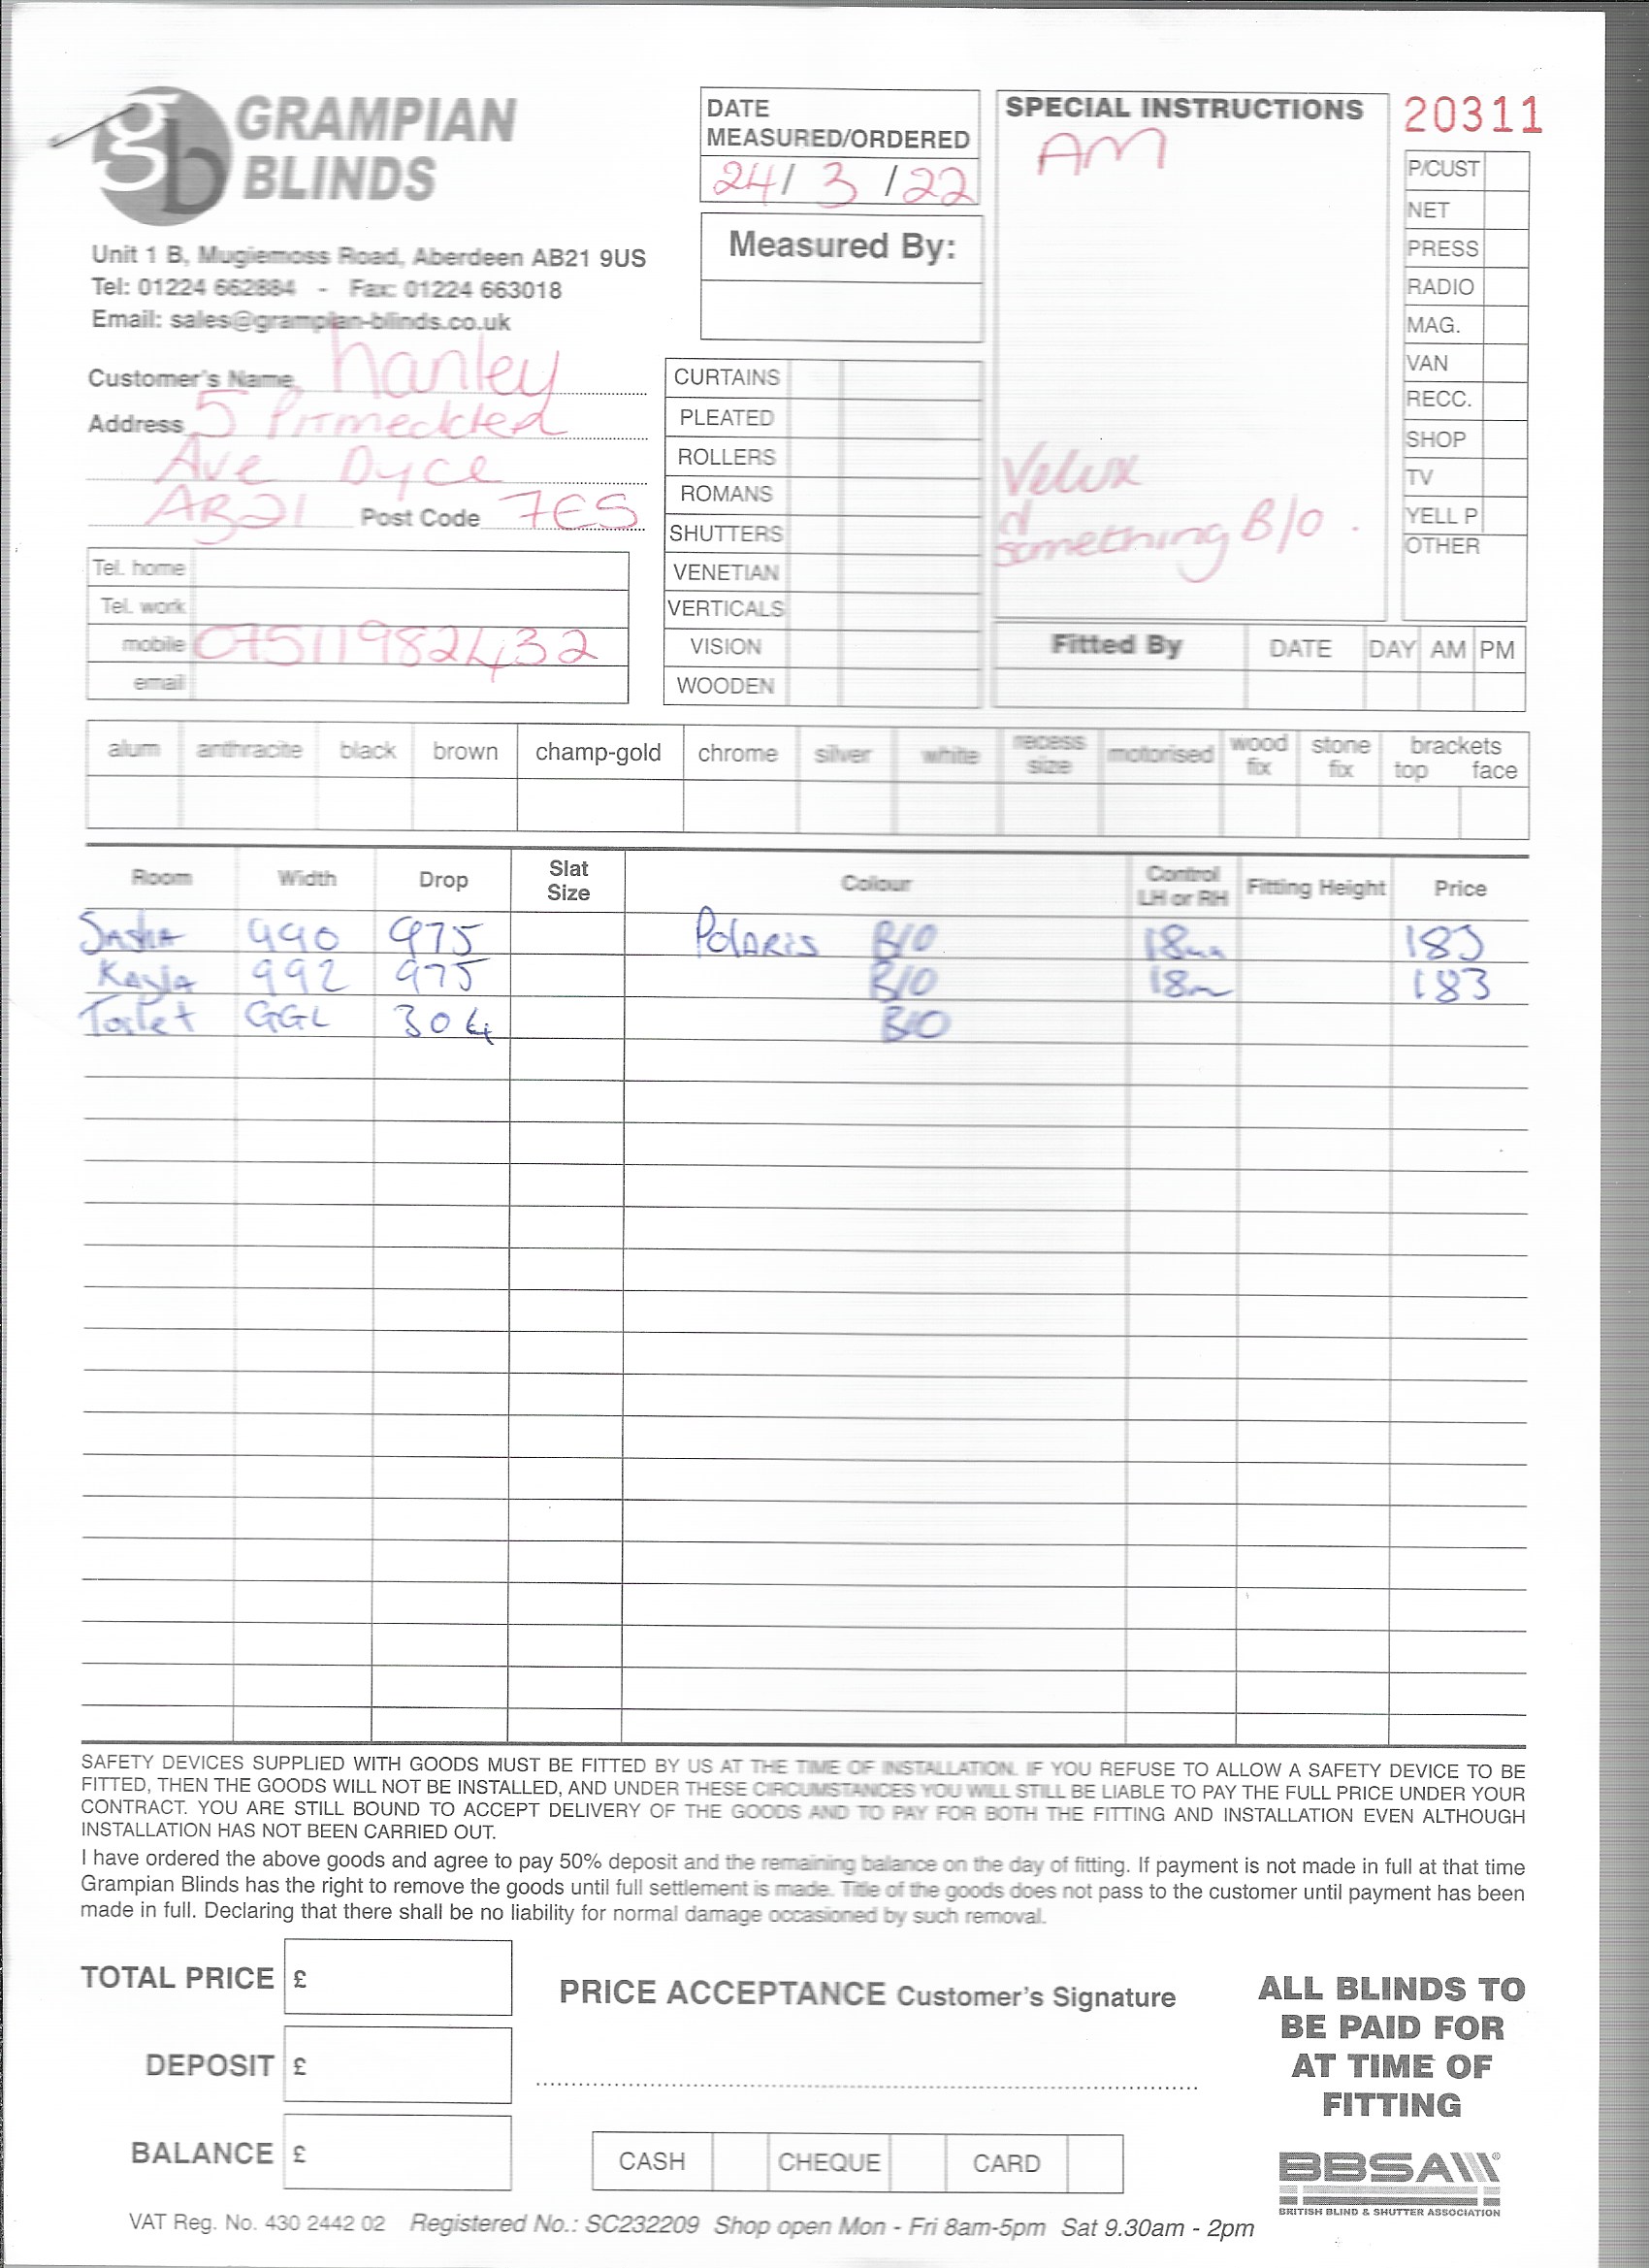 GRAMPIAN
BLINDS
Unit 1 B, Mugiemoss Road, Aberdeen AB21 9US
Tel: 01224 662884 - Fax: 01224 663018
Email: sales@grampian-blinds.co.uk
DATE
MEASURED/ORDERED
24/ 3 /22
Measured By:
SPECIAL INSTRUCTIONS
AM
Velux
d
something B/O .
20311
P/CUST
NET
PRESS
RADIO
MAG.
VAN
RECC.
SHOP
TV
YELL P
OTHER
Customer's Name hanley
Address 5
Ave Dyce
AB21 Post Code 7ES
Tel. home
Tel. work
mobile 07511982432
email
CURTAINS
PLEATED
ROLLERS
ROMANS
SHUTTERS
VENETIAN
VERTICALS
VISION
WOODEN
Fitted By DATE DAY AM PM
alum anthracite black brown champ-gold chrome silver white recess size motorised wood fix stone fix brackets top face
Room Width Drop Slat Size Colour Control LH or RH Fitting Height Price
Sasha 990 975 Polaris B/O 18m 183
Kayla 992 975 B/O 18m 183
Toilet GGL 304 B/O
SAFETY DEVICES SUPPLIED WITH GOODS MUST BE FITTED BY US AT THE TIME OF INSTALLATION. IF YOU REFUSE TO ALLOW A SAFETY DEVICE TO BE
FITTED, THEN THE GOODS WILL NOT BE INSTALLED, AND UNDER THESE CIRCUMSTANCES YOU WILL STILL BE LIABLE TO PAY THE FULL PRICE UNDER YOUR
CONTRACT. YOU ARE STILL BOUND TO ACCEPT DELIVERY OF THE GOODS AND TO PAY FOR BOTH THE FITTING AND INSTALLATION EVEN ALTHOUGH
INSTALLATION HAS NOT BEEN CARRIED OUT.
I have ordered the above goods and agree to pay 50% deposit and the remaining balance on the day of fitting. If payment is not made in full at that time
Grampian Blinds has the right to remove the goods until full settlement is made. Title of the goods does not pass to the customer until payment has been
made in full. Declaring that there shall be no liability for normal damage occasioned by such removal.
TOTAL PRICE £
DEPOSIT £
BALANCE £
PRICE ACCEPTANCE Customer's Signature
CASH CHEQUE CARD
ALL BLINDS TO
BE PAID FOR
AT TIME OF
FITTING
BBSA
BRITISH BLIND & SHUTTER ASSOCIATION
VAT Reg. No. 430 2442 02 Registered No.: SC232209 Shop open Mon - Fri 8am-5pm Sat 9.30am - 2pm